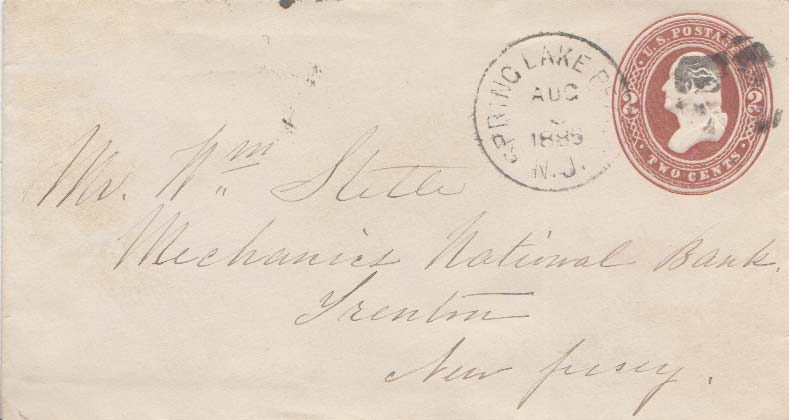 SPRING LAKE
AUG
1885
N.J.
U.S. POSTAGE
2 2
TWO CENTS
Mr. Wm Stelle
Mechanics National Bank.
Trenton
New Jersey.